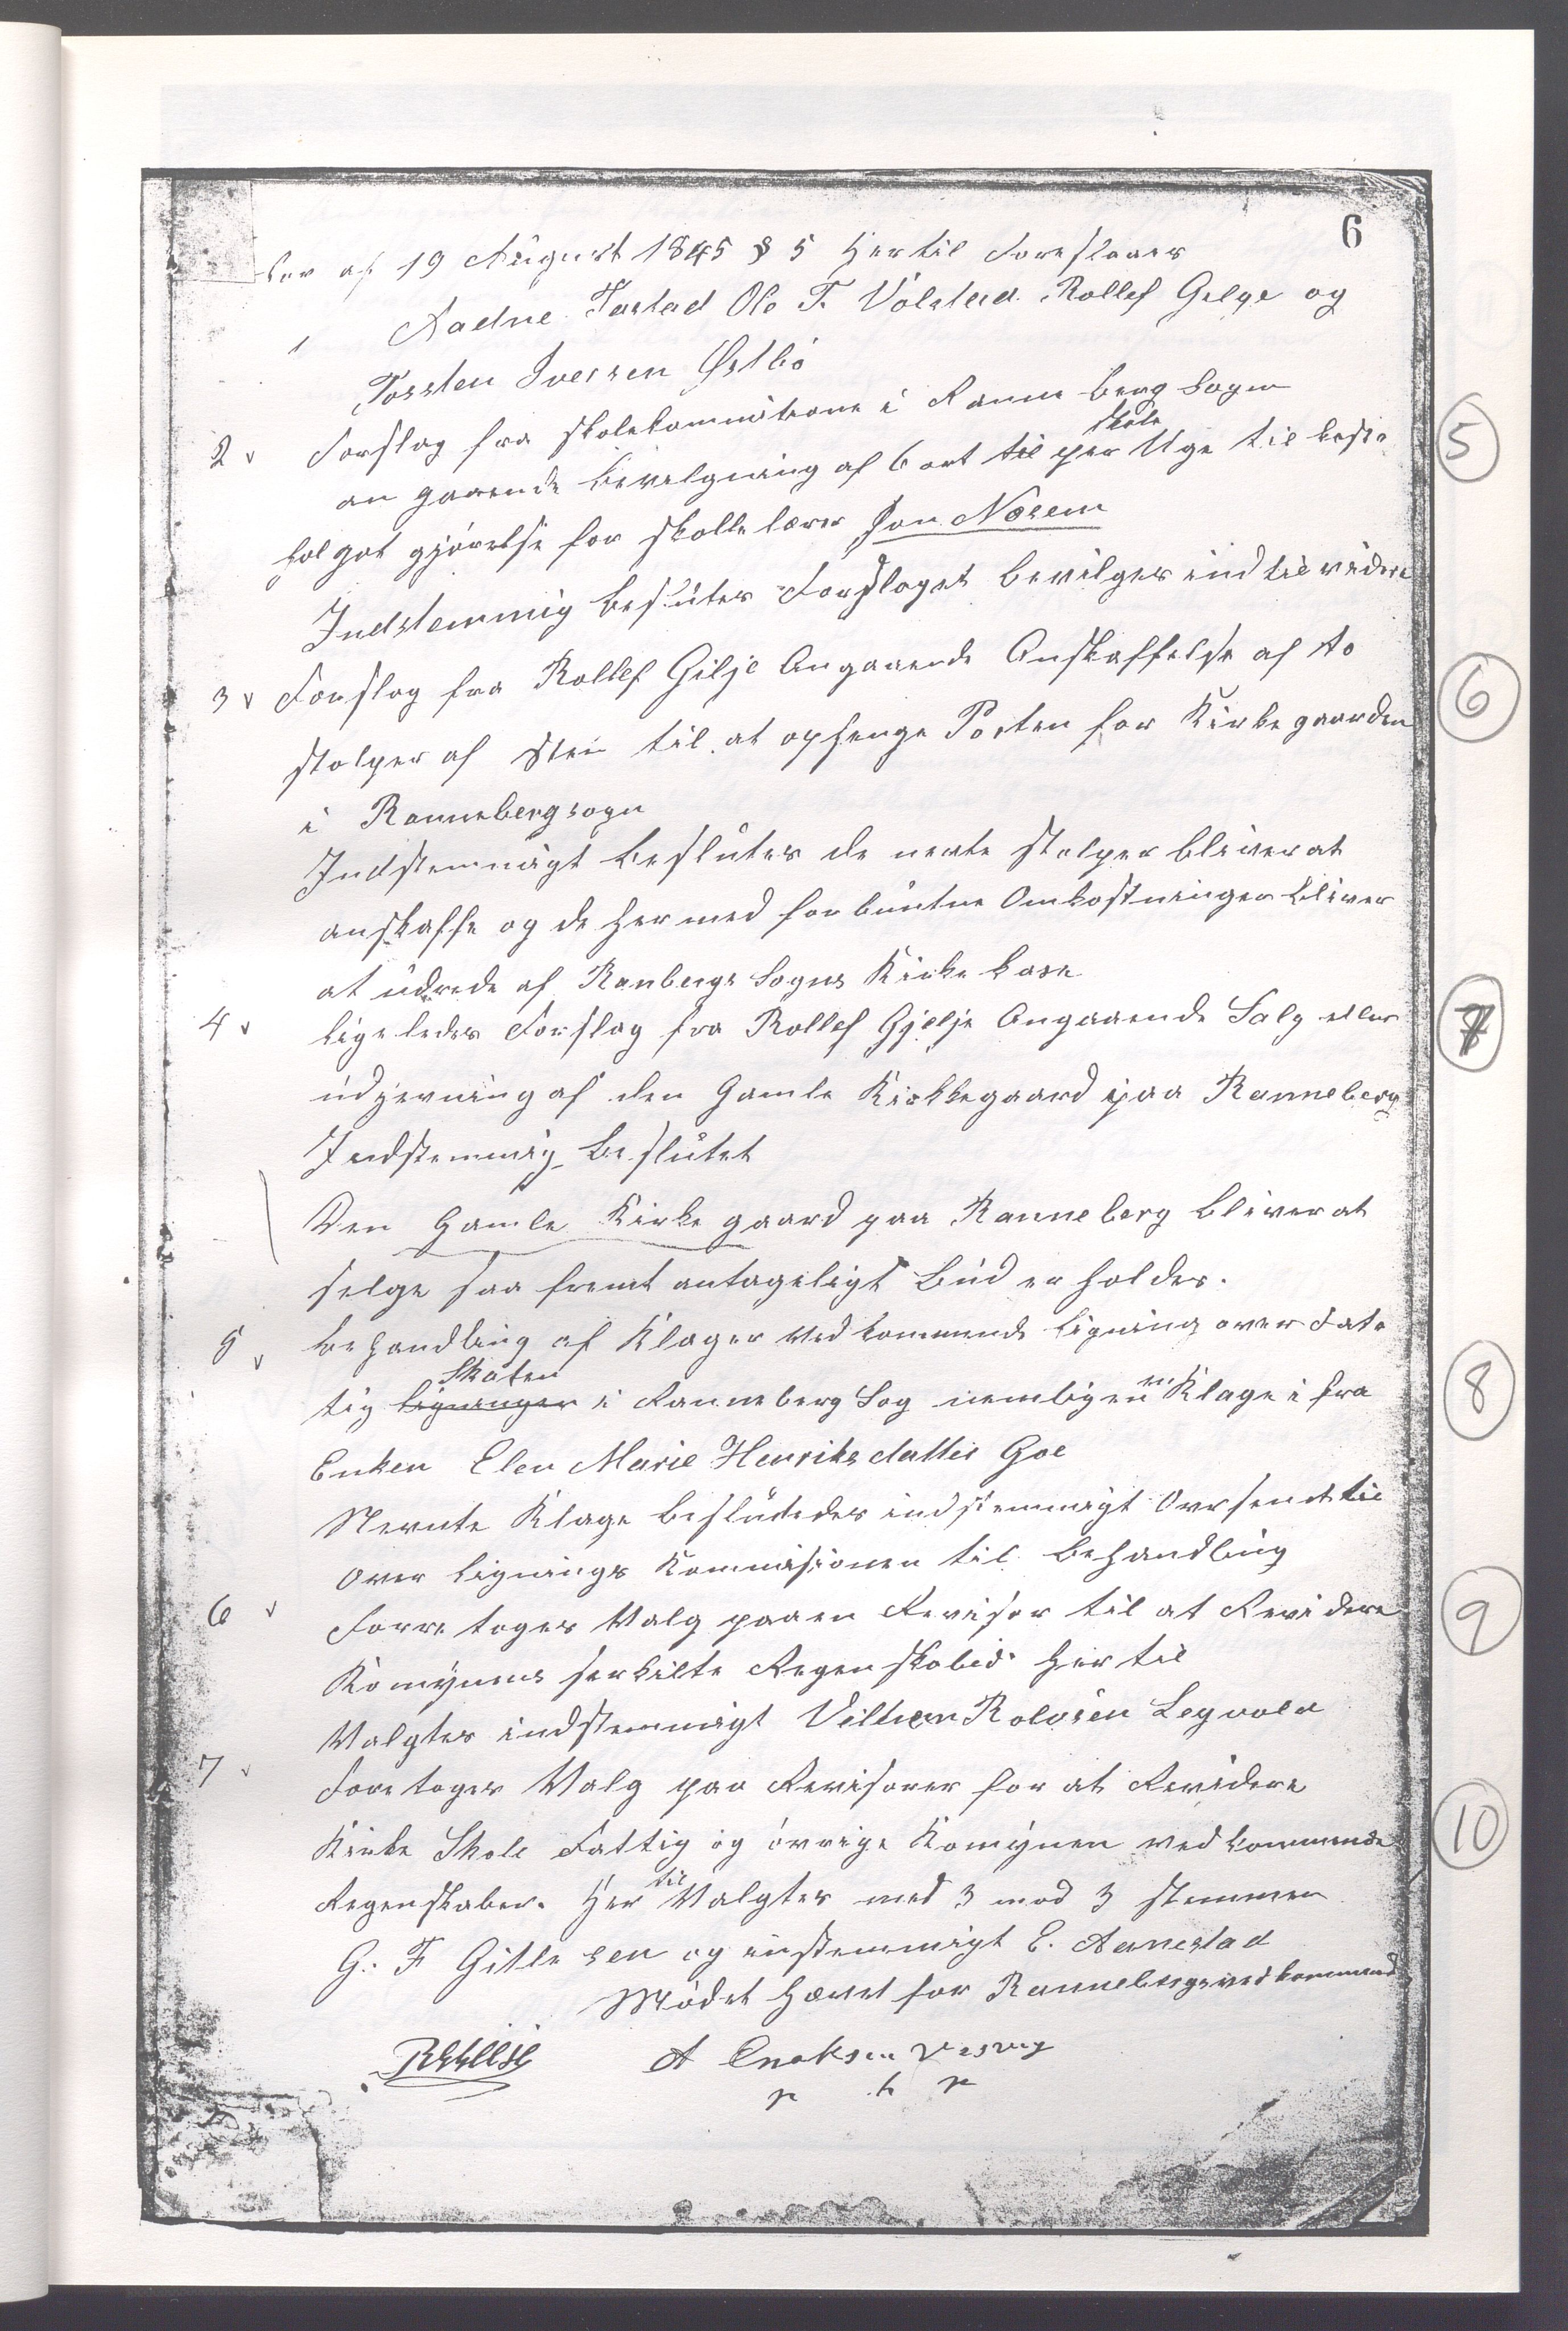 6
Lov af 19 August 1845 § 5 Hertil Foreslaaes
Aadne Tastad Ole T. Volstad Rollef Gelge og
Torsten Iversen Østbö
2 v Forslag fra skolekommitione i Ranne berg Sogn
an gaaende bevilgning af 6 ort til per skole Uge til kost
hol godt gjörelse for skolle lærer Jon Nøsem
Indstemmig beslutes Forslaget bevilges ind til videre
3 v Forslag fra Rollef Gilje Angaaende Anskaffelse af to
stolper af Stein til at ophenge Porten for Kirke gaarden
i Ranneberg sogn
Indstemmigt beslutes de nevte stolper bliver at
anskaffe og de her med forbuntne Omkostninger bliver
at udrede af Ranbergs Sogns Kirke kase
4 v ligeledes Forslag fra Rollef Gjelje Angaaende Salg eller
udjevning af den Gamle Kirkkegaard paa Ranneberg
Indstemmig beslutet
Den Gamle Kirke gaard paa Ranneberg bliver at
selge saa fremt antageligt Bud er holdes.
5 v behandling af Klager Vedkommende ligning over Fat
tig ligninger Skaten i Ranneberg Sog nemlig en Klage i fra
Enken Elen Marie Henriks datter Goe
Nevnte Klage beslutedes indstemmigt Oversendt til
Over lignings Kommisionen til behandling
6 v Forre toges Valg paa en Revisor til at Revidere
Komynens serkilte Regenskabid her til
Valgtes indstemmigt Villem Rolvsen Legvold
7 v Fore toges Valg paa Revisorer for at Revidere
Kirke Skole Fattig og övrige Komynen vedkommende
Regenskaber. Her til Valgtes med 3 mod 3 stemmer
G. F Gitle sen og instemmigt E. Aanestad
Mödet hævet for Rannebergs vedkommend
RGGilje A Enoksen Vesvig
5
6
7
8
9
10